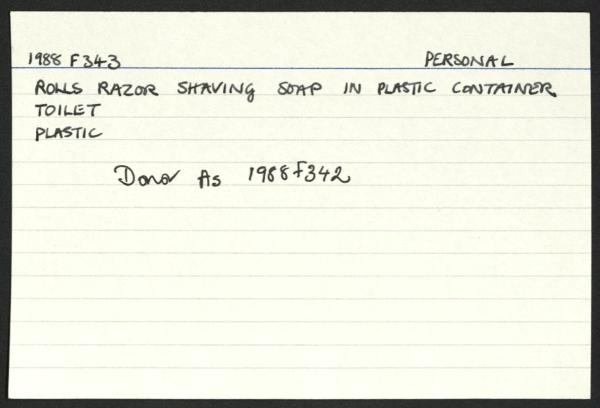 1988 F343 PERSONAL
ROLLS RAZOR SHAVING SOAP IN PLASTIC CONTAINER.
TOILET
PLASTIC
Donor As 1988F342